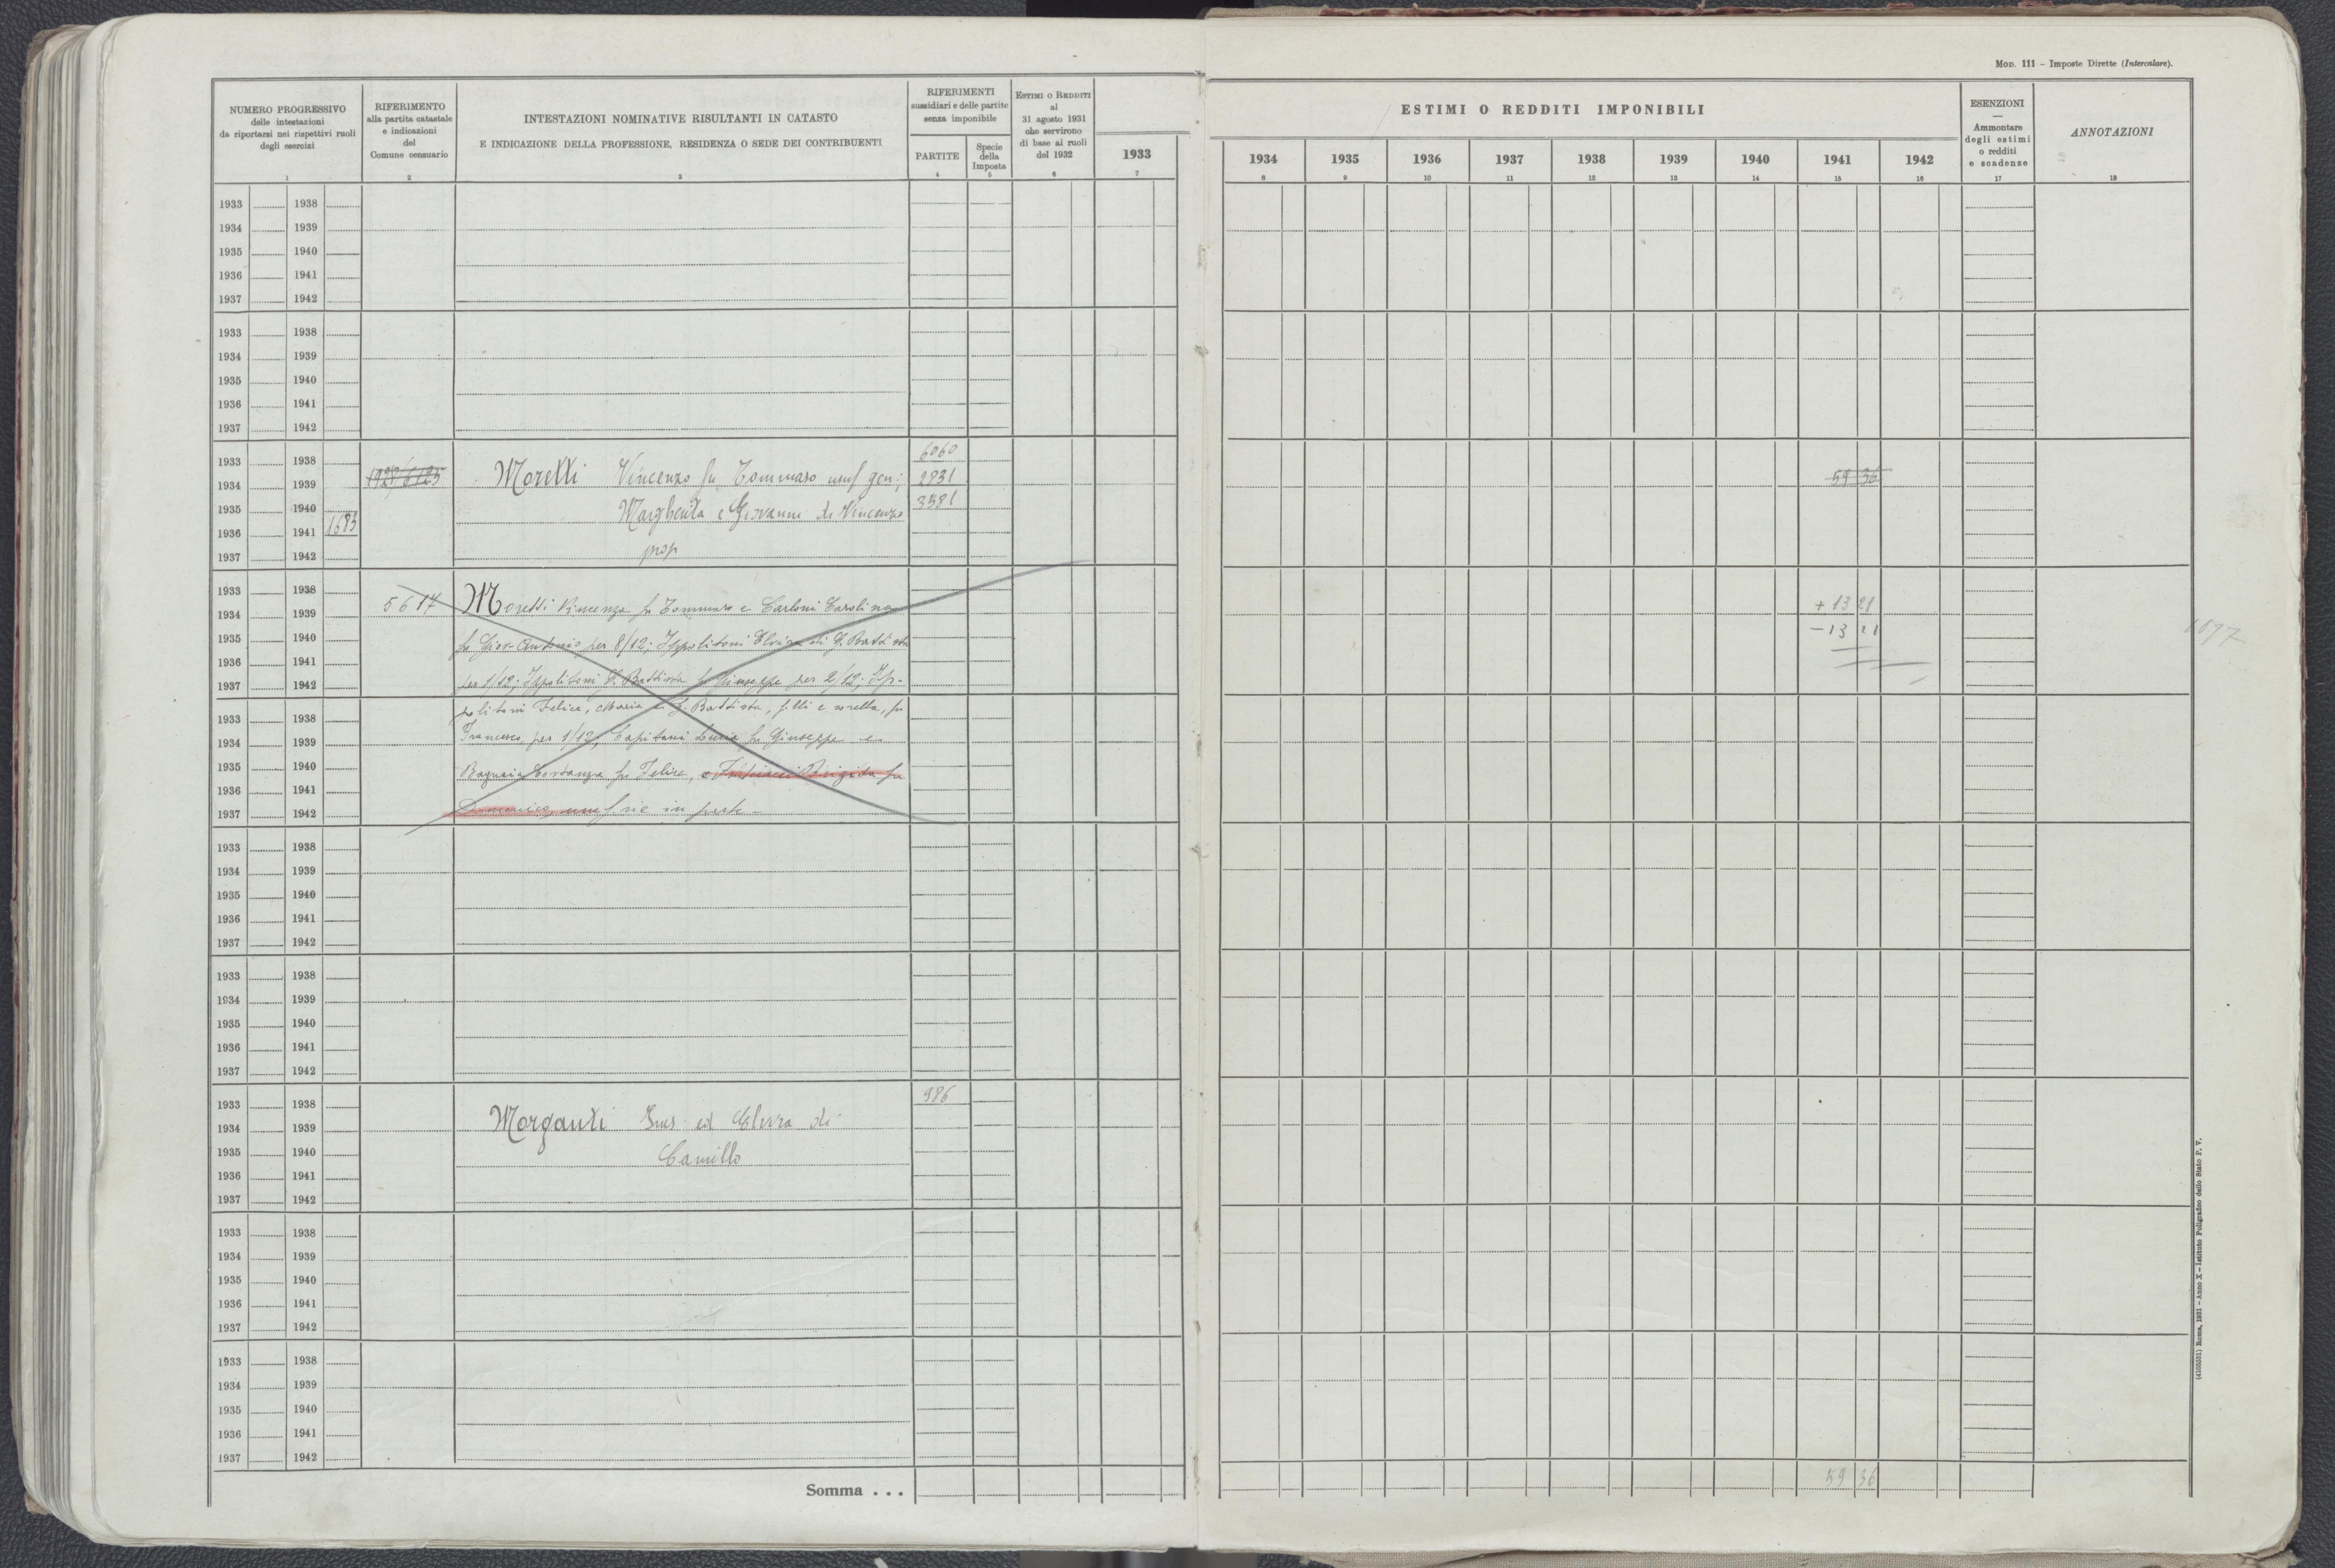 MOD. 111 – Imposte Dirette (Intercalare).
NUMERO PROGRESSIVO
delle intestazioni
da riportarsi nei rispettivi ruoli
degli esercizi
1
RIFERIMENTO
alla partita catastale
e indicazioni
del
Comune censuario
2
INTESTAZIONI NOMINATIVE RISULTANTI IN CATASTO
E INDICAZIONE DELLA PROFESSIONE, RESIDENZA O SEDE DEI CONTRIBUENTI
3
RIFERIMENTI
sussidiari e delle partite
senza imponibile
PARTITE
4
Specie
della
Imposta
5
ESTIMI O REDDITI
al
31 agosto 1931
che servirono
di base ai ruoli
del 1932
6
1933
7
ESTIMI O REDDITI IMPONIBILI
1934 1935 1936 1937 1938 1939 1940 1941 1942
8 9 10 11 12 13 14 15 16
ESENZIONI
—
Ammontare
degli estimi
o redditi
e scadenze
17
ANNOTAZIONI
18
1933 1938
1934 1939
1935 1940
1936 1941
1937 1942
1933 1938
1934 1939
1935 1940
1936 1941
1937 1942
1933 1938 6060
1934 1939 Moretti Vincenzo fu Tommaso usuf gen; 2831 59 36
1935 1940 Margherita e Giovanni di Vincenzo 3581
1936 1941 1683
1937 1942 prop
1933 1938
1934 1939 5617 Moretti Vincenzo fu Tommaso e Carloni Carolina + 13 21
1935 1940 fu Giov. Antonio per 8/12; Ippolitoni Elvira di G. Battista – 13 21
1936 1941
1937 1942 per 1/12; Ippolitoni G. Battista fu Giuseppe per 2/12; Ip-
1933 1938 politoni Felice, Maria e G. Battista, f.lli e sorella, fu
1934 1939 Francesco per 1/12; Capitani Lucia fu Giuseppe e
1935 1940 Bagnaia Costanza fu Felice, e Brigida fu
1936 1941
1937 1942 Domenico, usuf.rie in parte –
1933 1938
1934 1939
1935 1940
1936 1941
1937 1942
1933 1938
1934 1939
1935 1940
1936 1941
1937 1942
1933 1938 986
1934 1939 Morganti ed Elvira di
1935 1940 Camillo
1936 1941
1937 1942
1933 1938
1934 1939
1935 1940
1936 1941
1937 1942
1933 1938
1934 1939
1935 1940
1936 1941
1937 1942
Somma . . . 59 36
(4103531) Roma, 1931 – Anno X – Istituto Poligrafico dello Stato P. V.